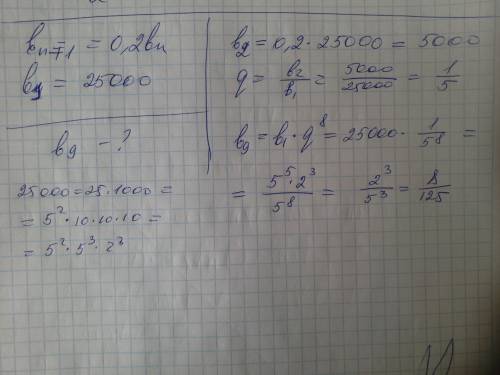 bₙ₊₁ = 0,2bₙ
b₁ = 25000
b₉ - ?
25000 = 25 · 1000 =
= 5² · 10 · 10 · 10 =
= 5² · 5³ · 2³
b₂ = 0,2 · 25000 = 5000
q = b₂/b₁ = 5000/25000 = 1/5
b₉ = b₁ · q⁸ = 25000 · 1/5⁸ =
= 5⁵ · 2³/5⁸ = 2³/5³ = 8/125